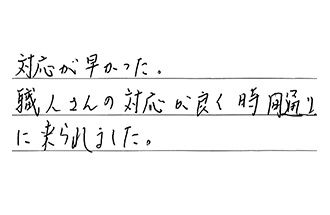 対応が早かった。
職人さんの対応が良く時間通り
に来られました。